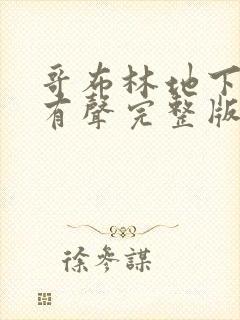 哥布林地下
有聲完整版
徐參謀